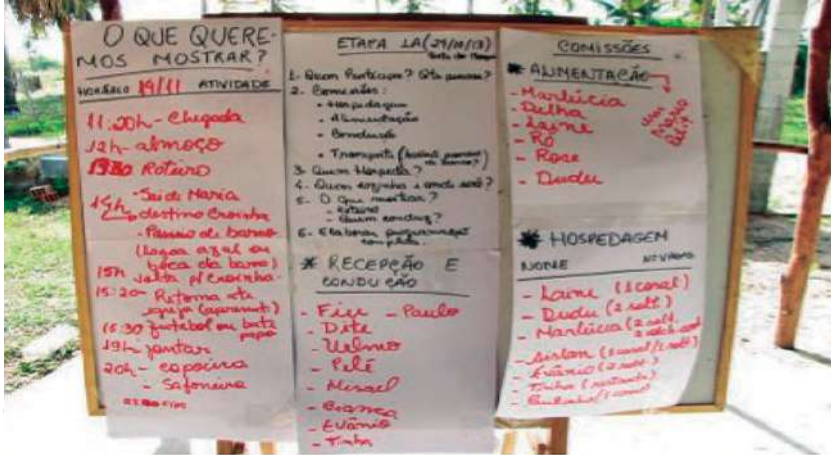 O QUE QUERE-
MOS MOSTRAR?
HORÁRIO 19/11 ATIVIDADE
11:20h - Chegada
12h - almoço
Roteiro
14h - Saída Maria
destino Croinha
- Passeio de barco
(Lagoa azul ou
boca da barra)
15h Volta p/ Croinha
15:20 - Retorna até
igreja
15:30 futebol ou bate
papo
19h jantar
20h - capoeira
- Safoneiro
ETAPA LA (29/10/13)
1- Quem Participa? Qts pessoas?
2- Comissões:
• Hospedagem
• Alimentação
• Condução
• Transporte
3- Quem Hospeda?
4- Quem cozinha e onde será?
5- O que mostrar?
- Roteiro
- Quem conduz?
6- Elaborar programação
completa.
* RECEPÇÃO E
CONDUÇÃO
- Paulo
- Dite
- Pelé
- Misael
- Bianca
- Evânio
- Tinha
COMISSÕES
* ALIMENTAÇÃO
- Marlúcia
- Delha
- Laine
- Ro
- Rose
- Dudu
* HOSPEDAGEM
NOME
- Laine (1 casal)
- Dudu (2 solt.)
- Marlúcia (2 solt.
- Aislan (1 casal/1 solt.)
- Evânio (2 solt.)
- Tinha (restante)